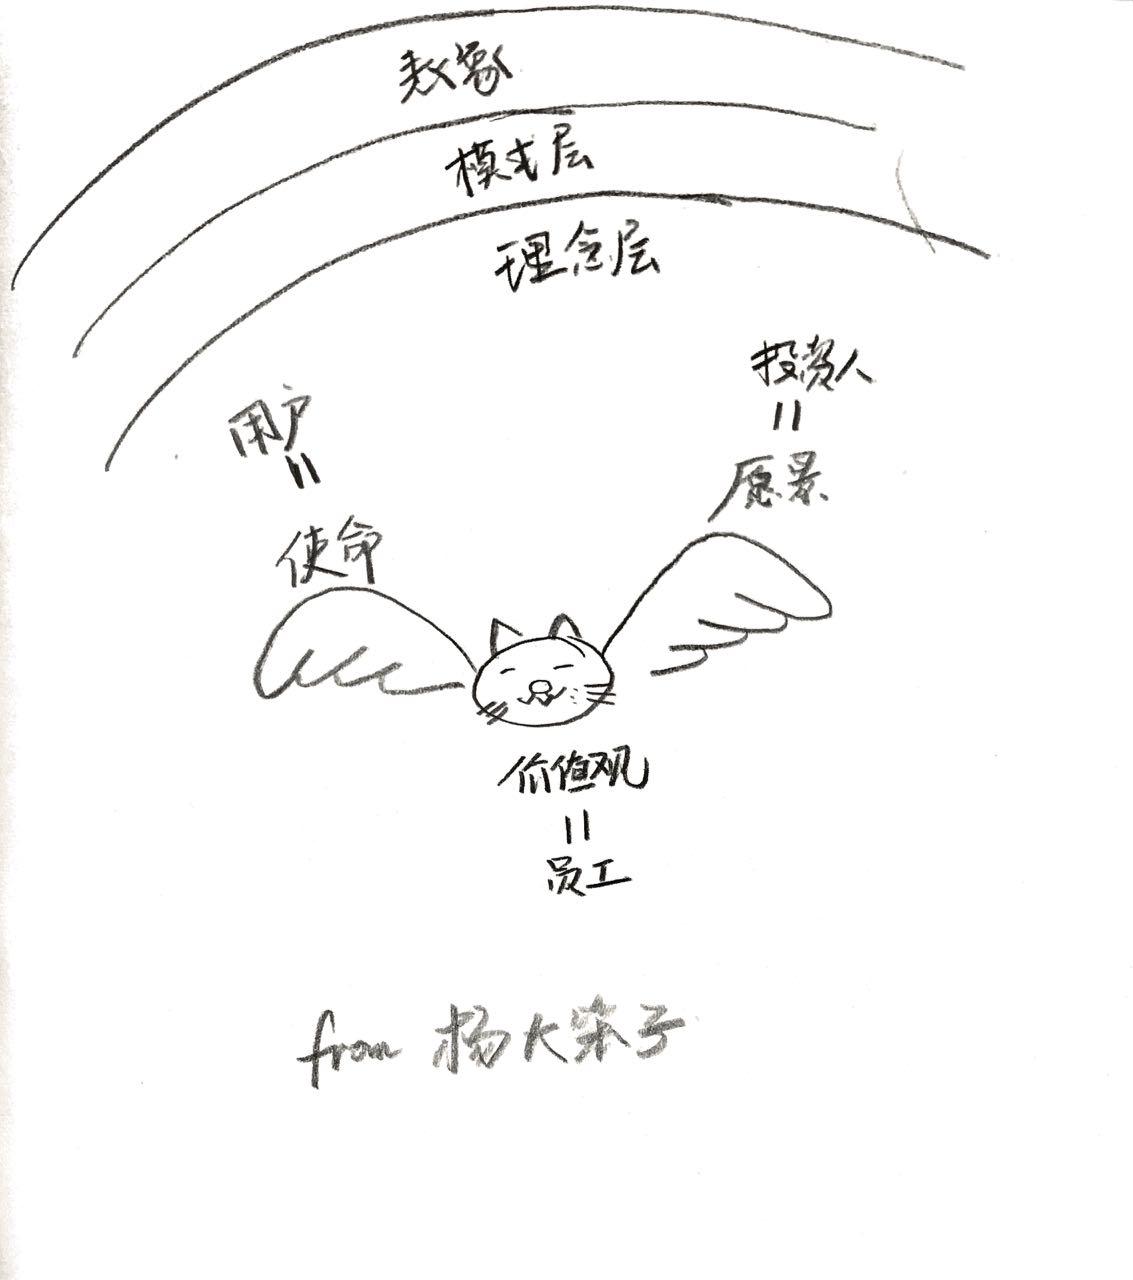 表象
模式层
理念层
投资人
||
用户
||
愿景
使命
价值观
||
员工
from 杨大